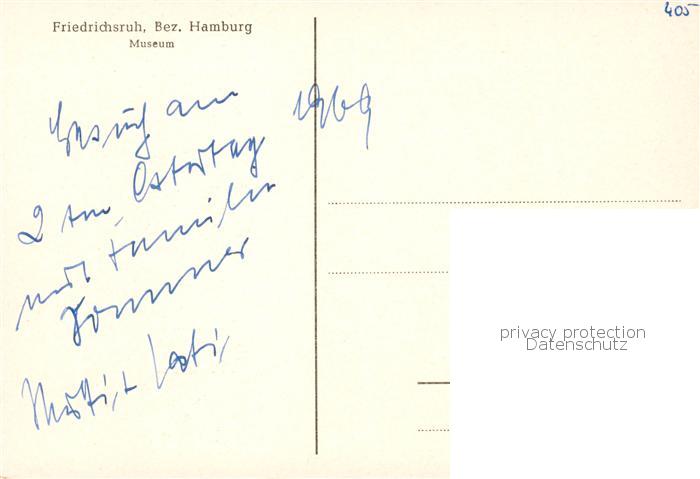 Friedrichsruh, Bez. Hamburg
Museum
405
Besuch am 1969
2ten Ostertag
mit Familie
Sommer
Mutti +
privacy protection
Datenschutz